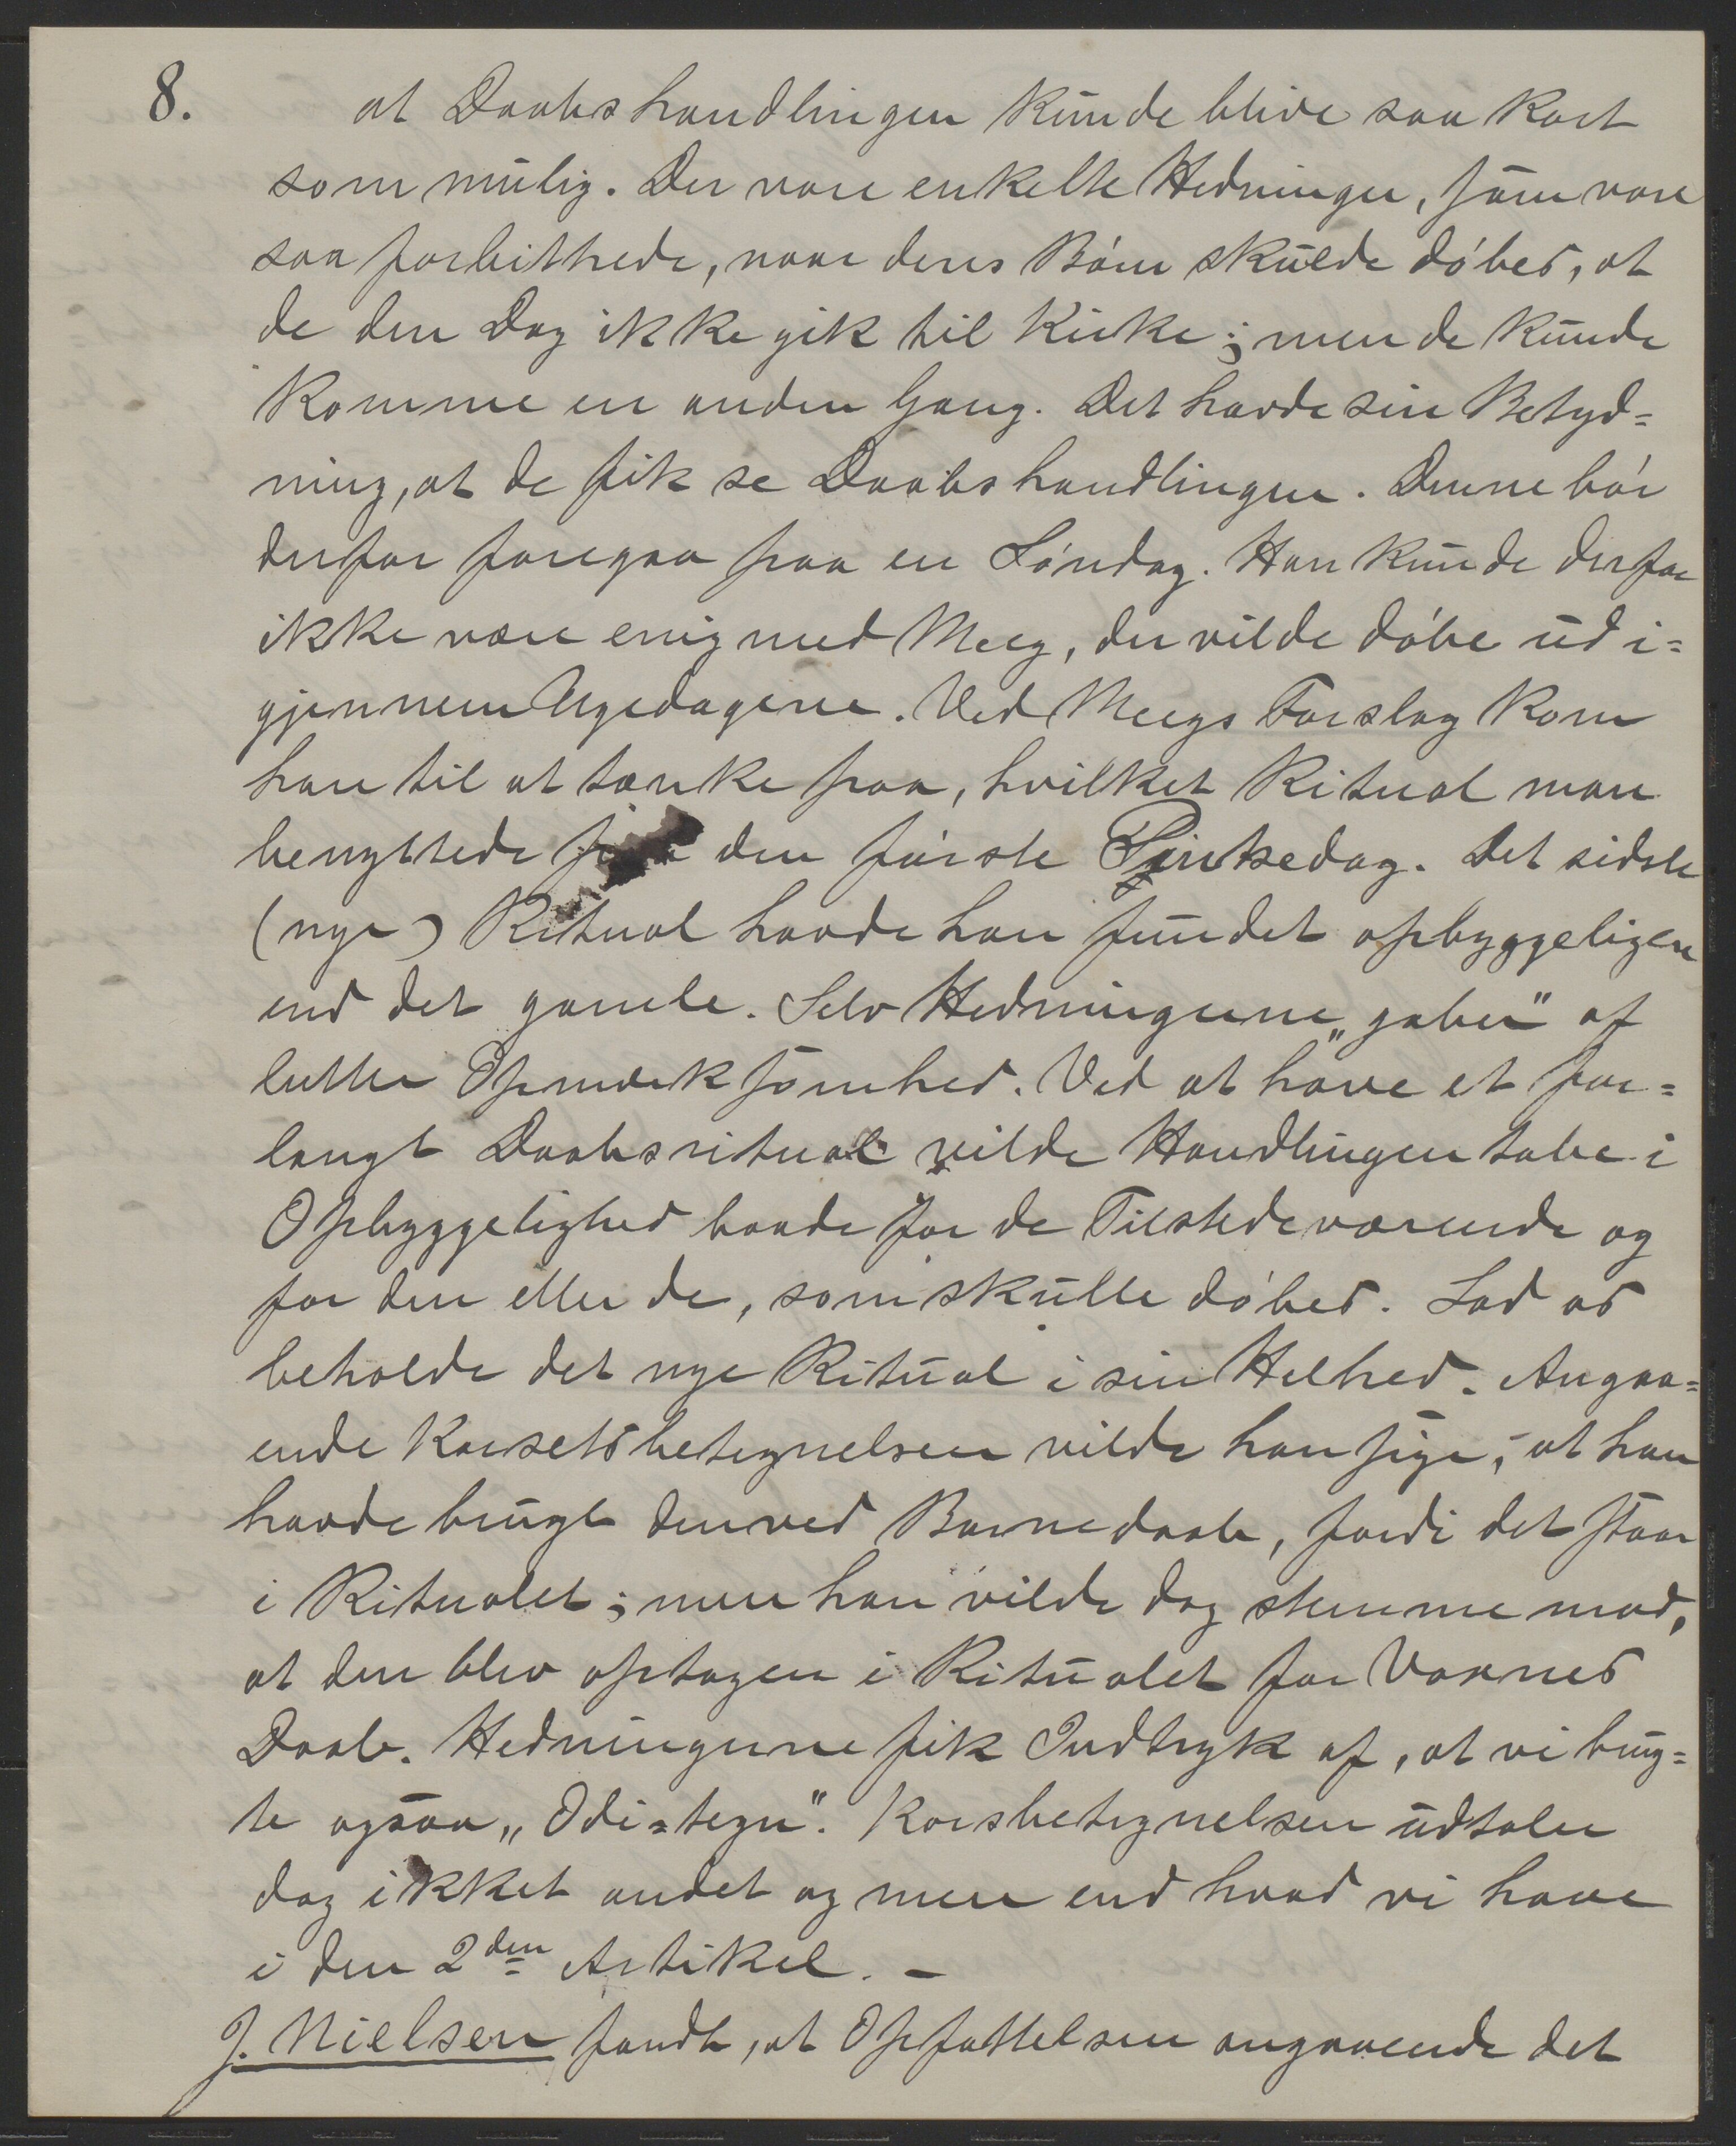 8. at Daabshandlingen kunde blive saa kort
som mulig. Der vare enkelte Hedninger, som vare
saa forbittrede, naar deres Börn skulde döbes, at
de den Dag ikke gik til Kirke; men de kunde
komme en anden Gang. Det havde sin Betyd=
ning, at de fik se Daabshandlingen. Denne bör
derfor foregaa paa en Söndag. Han kunde derfor
ikke være enig med Meeg, der vilde döbe ud i=
gjennem Ugedagene. Ved Meegs Forslag kom
han til at tænke paa, hvilket Ritual man
benyttede paa den förste Pintsedag. Det sidste
(nye) Ritual havde han fundet opbyggeligere
end det gamle. Selv Hedningerne „gaber" af
lutter Opmærksomhed. Ved at have et for=
langt Daabsritual vilde Handlingen tabe i
Opbyggelighed baade for de Tilstedeværende og
for den eller de, som skulle döbes. Lad os
beholde det nye Ritual i sin Helhed. Angaa=
ende Korsetsbetegnelsen vilde han sige, at han
havde brugt den ved Barnedaab, fordi det staar
i Ritualet; men han vilde dog stemme mod,
at den blev optagen i Ritualet for Voxnes
Daab. Hedningerne fik Indtryk af, at vi brug=
te ogsaa „Odi=tegn". Korsbetegnelsen udtaler
dog ikket andet og mere end hvad vi have
i den 2den Artikel. –
J. Nielsen fandt, at Opfattelsen angaaende det